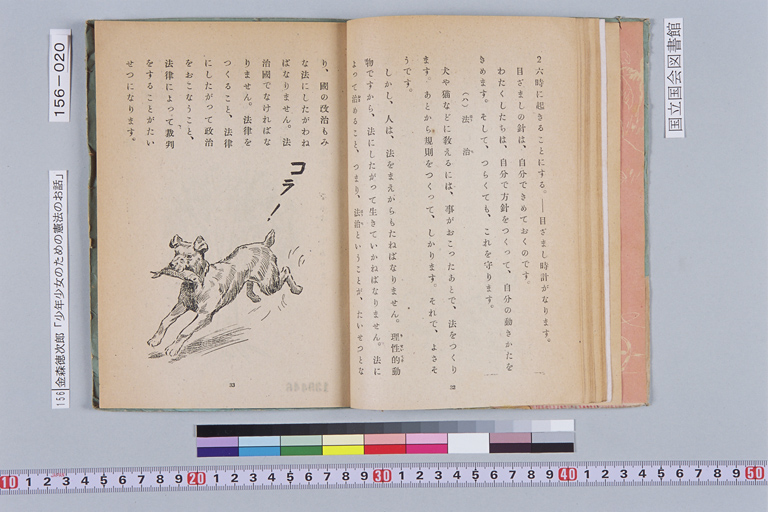 国立国会図書館
２六時に起きることにする。――目ざまし時計がなります。
目ざましの針は、自分できめておくのです。
わたくしたちは、自分で方針をつくって、自分の動きかたを
きめます。そして、つらくても、これを守ります。
法治
犬や猫などに教えるには、事がおこったあとで、法をつくり
ます。あとから規則をつくって、しかります。それで、よさそ
うです。
しかし、人は、法をまえからもたねばなりません。理性的動
物ですから、法にしたがって生きていかねばなりません。法に
よって治めること、つまり、法治ということが、たいせつとな
32
り、國の政治もみ
な法にしたがわね
ばなりません。法
治國でなければな
りません。法律を
つくること、法律
にしたがって政治
をおこなうこと、
法律によって裁判
をすることがたい
せつになります。
コラ！
33
156－020
156 金森徳次郎「少年少女のための憲法のお話」
10 1 2 3 4 5 6 7 8 9 20 1 2 3 4 5 6 7 8 9 30 1 2 3 4 5 6 7 8 9 40 1 2 3 4 5 6 7 8 9 50